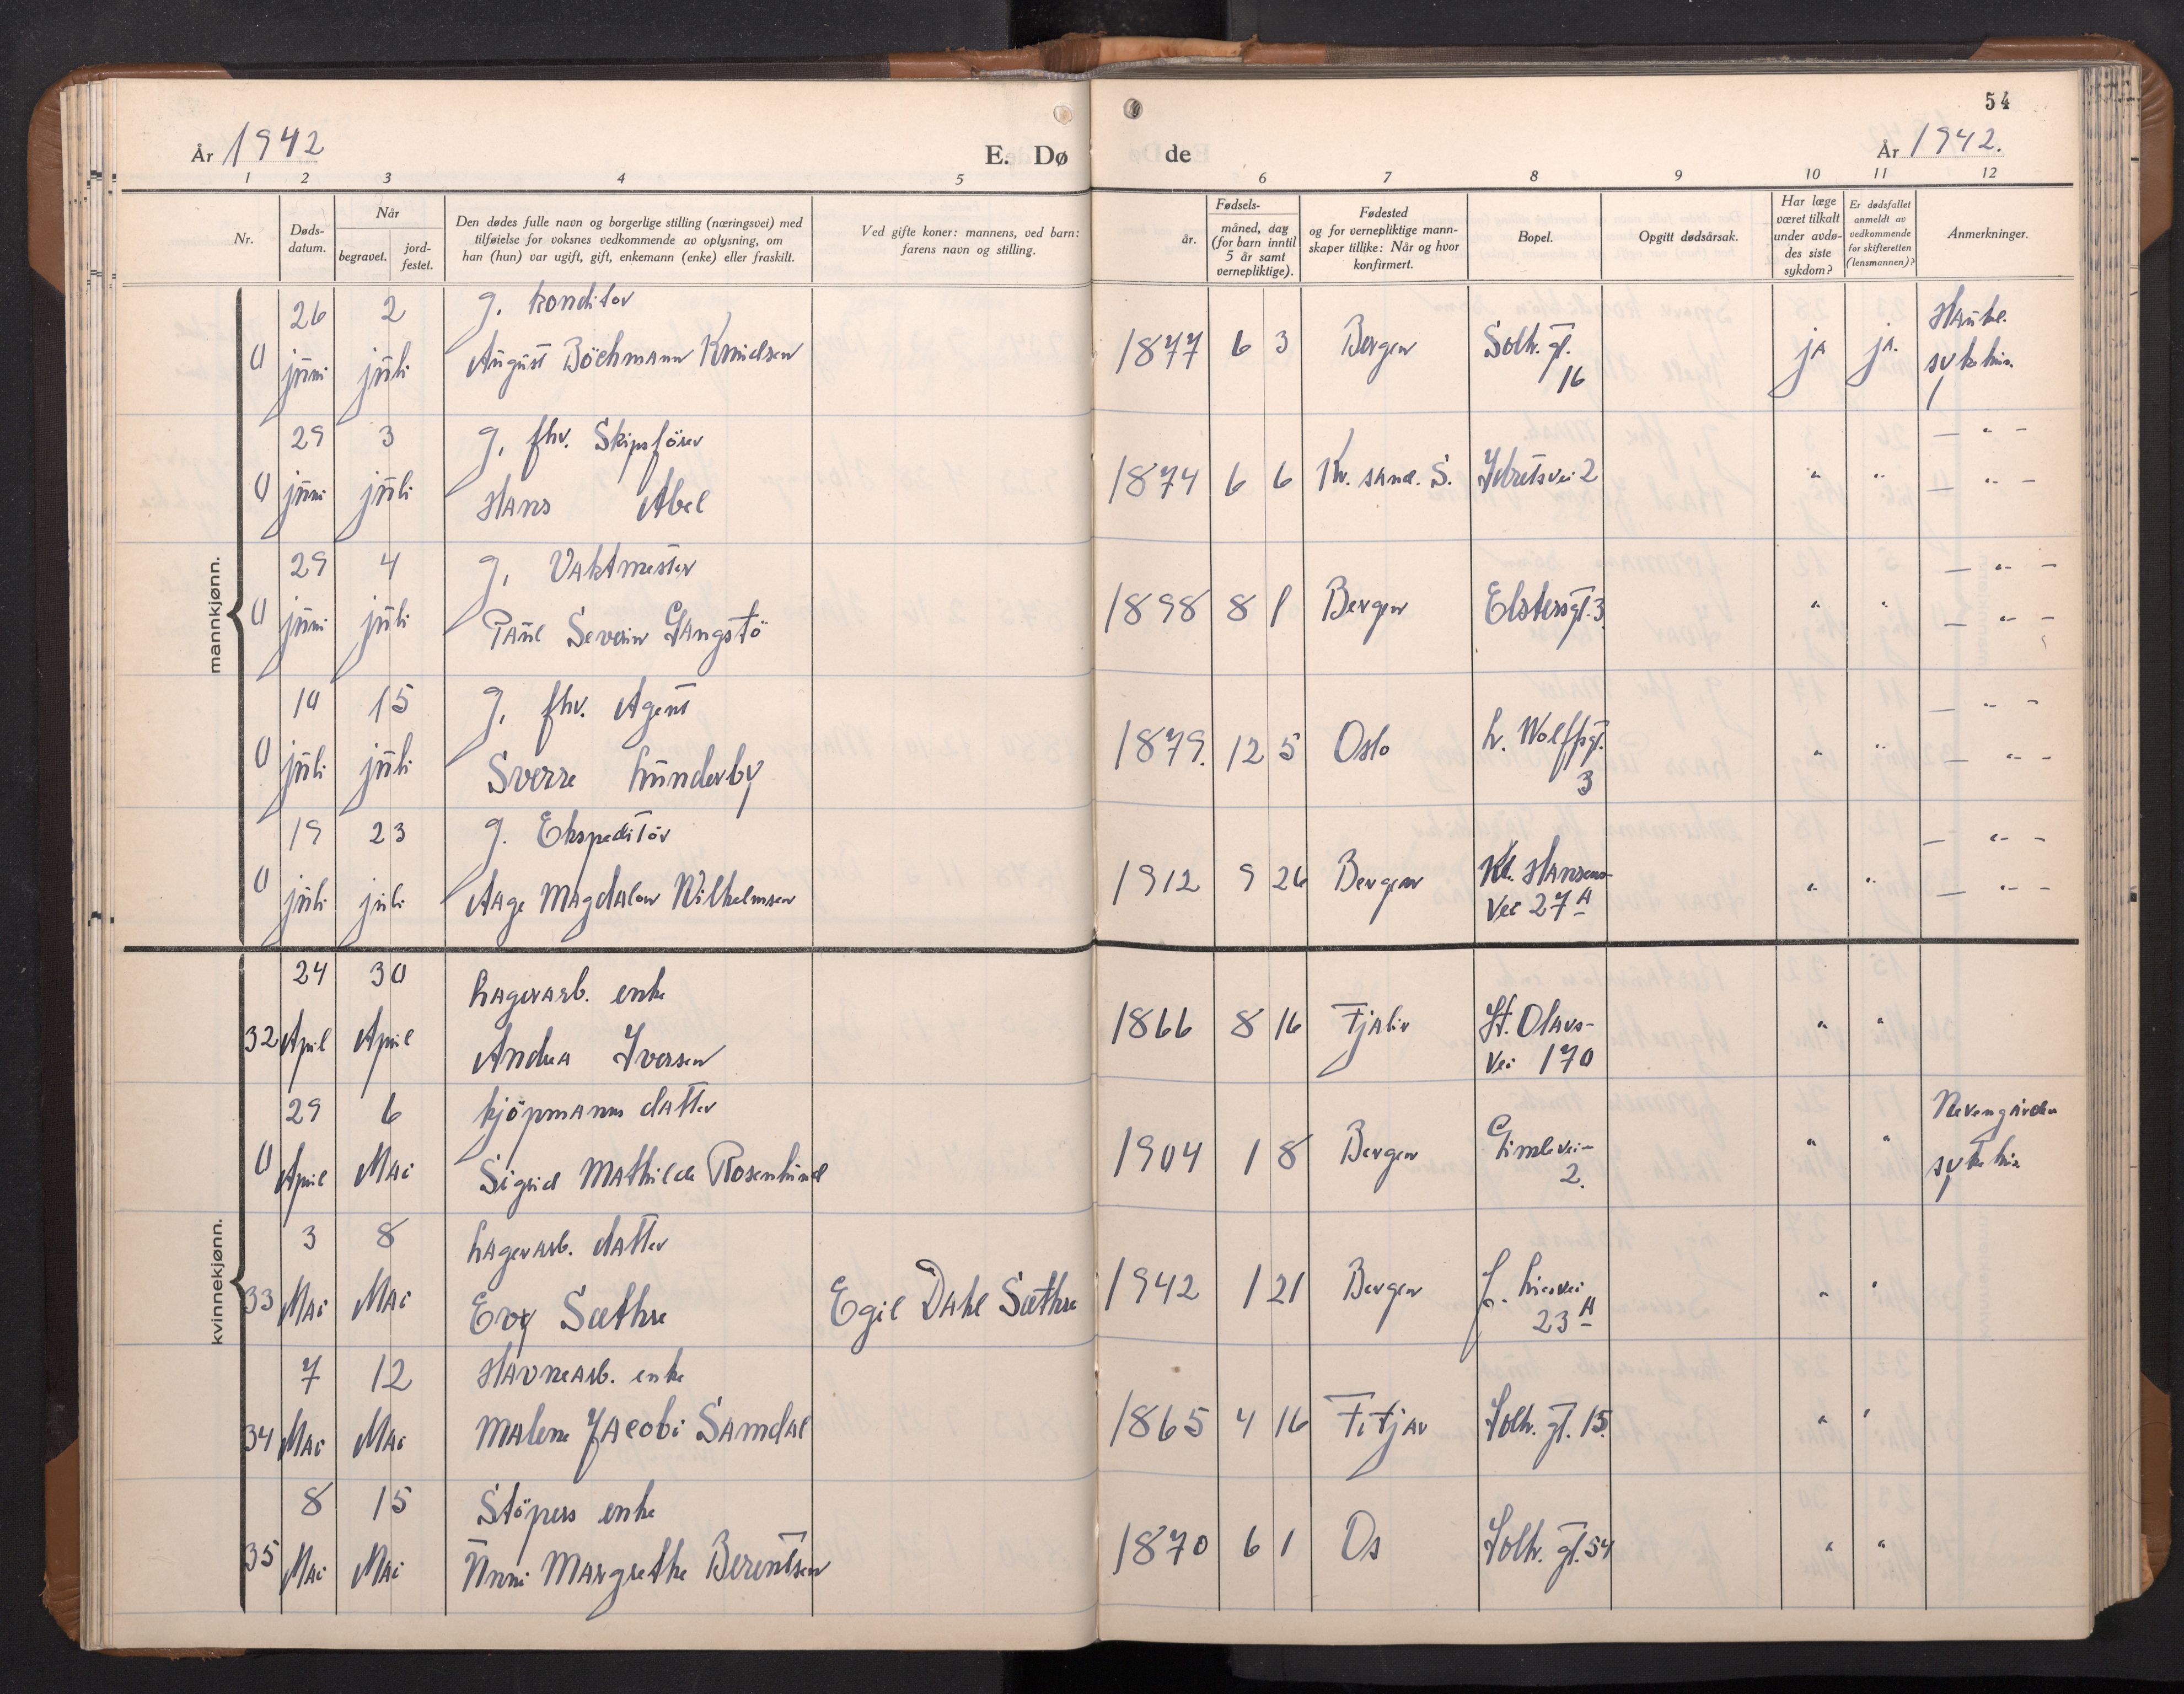 54
År 1942
E. Dø
de
År 1942.
1 2 3 4 5 6 7 8 9 10 11 12
Nr.
Døds-
datum.
Når
begravet.
jord-
festet.
Den dødes fulle navn og borgerlige stilling (næringsvei) med
tilføielse for voksnes vedkommende av oplysning, om
han (hun) var ugift, gift, enkemann (enke) eller fraskilt.
Ved gifte koner: mannens, ved barn:
farens navn og stilling.
Fødsels-
år.
måned, dag
(for barn inntil
5 år samt
vernepliktige).
Fødested
og for vernepliktige mann-
skaper tillike: Når og hvor
konfirmert.
Bopel.
Opgitt dødsårsak.
Har læge
været tilkalt
under avdø-
des siste
sykdom?
Er dødsfallet
anmeldt av
vedkommende
for skifteretten
(lensmannen)?
Anmerkninger.
mannkjønn.
26 2 g. konditor
0 juni juli August Böchmann Knudsen 1877 6 3 Bergen Solh. gt. 16 ja ja. Hauke. sykehus.
29 3 g. fhv. Skipsförer
0 juni juli Hans Abel 1874 6 6 Kr. sand. S. Idretsvei 2 " " — " —
— " —
29 4 g. Vaktmester
0 juni juli Paul Severin Langstö 1898 8 1 Bergen Elstersgt. 3 " " — " —
— " —
10 15 g. fhv. Agent
0 juli juli Sverre Lunderby 1879. 12 5 Oslo L. Wolffsgt. 3 " " — " —
— " —
19 23 g. Ekspeditör
0 juli juli Aage Magdalon Wilhelmsen 1912 9 26 Bergen Kl. Hansens- vei 27 A " " — " —
— " —
kvinnekjønn.
24 30 Lagerarb. enke
32 April April Andrea Iversen 1866 8 16 Fjaler St. Olavs- vei 170 " "
29 6 kjöpmanns datter
0 April Mai Sigrid Mathilde Rosenlund 1904 1 8 Bergen Gimlevei- 2. " " Nevengården sykehus
3 8 Lagerarb. datter
33 Mai Mai Evy Sæthre Egil Dahl Sæthre 1942 1 21 Bergen 23 A " "
7 12 Havnearb. enke
34 Mai Mai Malene Jacobi Samdal 1865 4 16 Fitjar Solh. gt. 15. " "
8 15 Stöpers enke
35 Mai Mai Anni Margrethe Berentsen 1870 6 1 Os Solh. gt. 54 " "